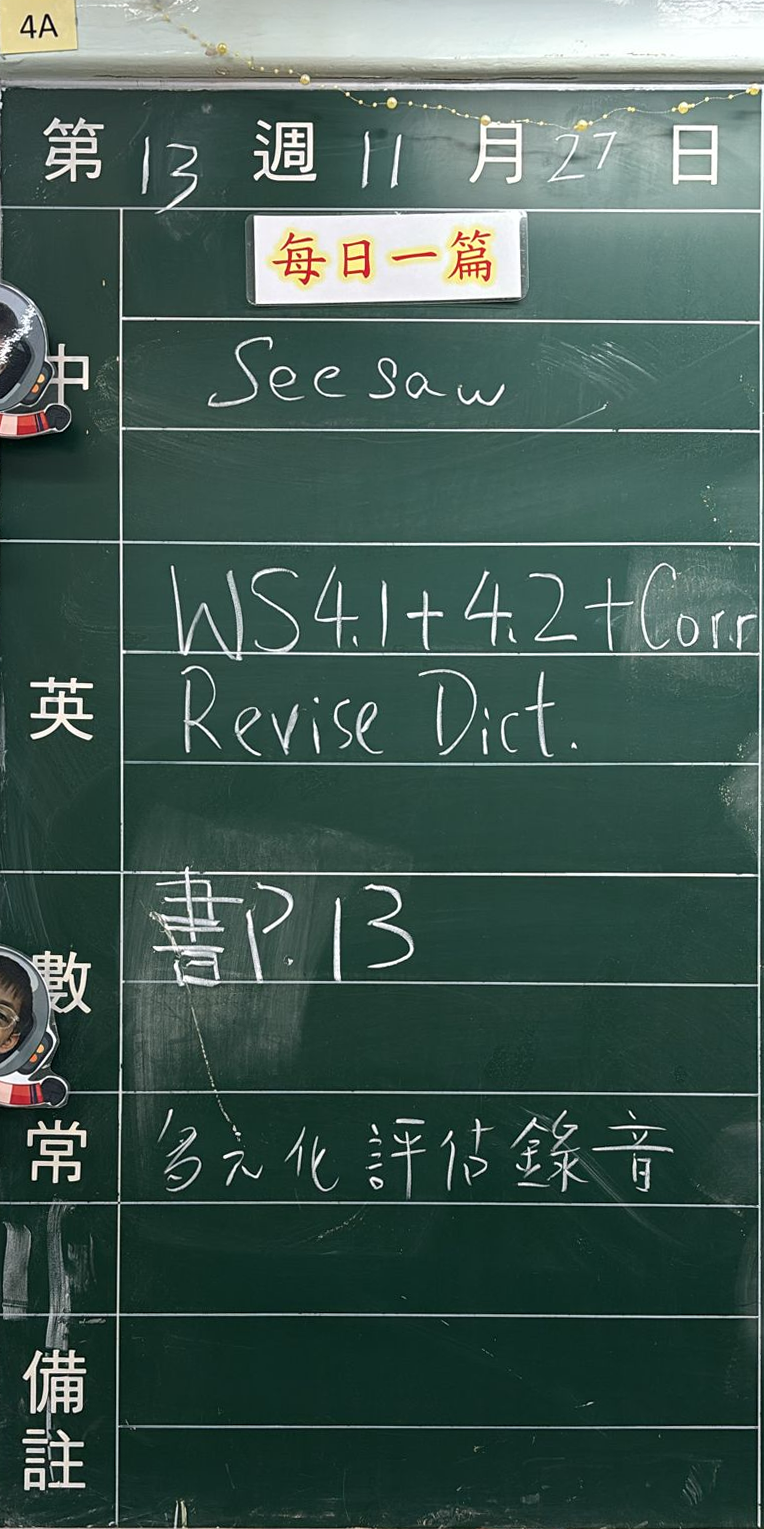 4A
第 13 週 11 月 27 日
每日一篇
中 Seesaw
WS 4.1 + 4.2 + Corr
英 Revise Dict.
書P.13
數
常 多元化評估錄音
備
註